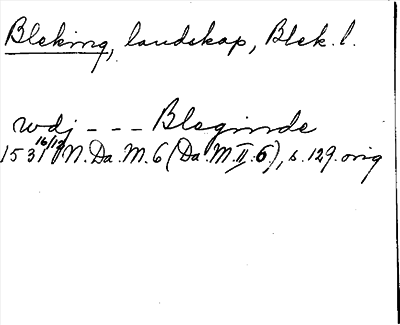 Bleking, landskap, Blek. l.
wdj - - - Bleginde
1531 16/12 N. Da. M. 6 (Da. M. II. 6), s. 129. orig